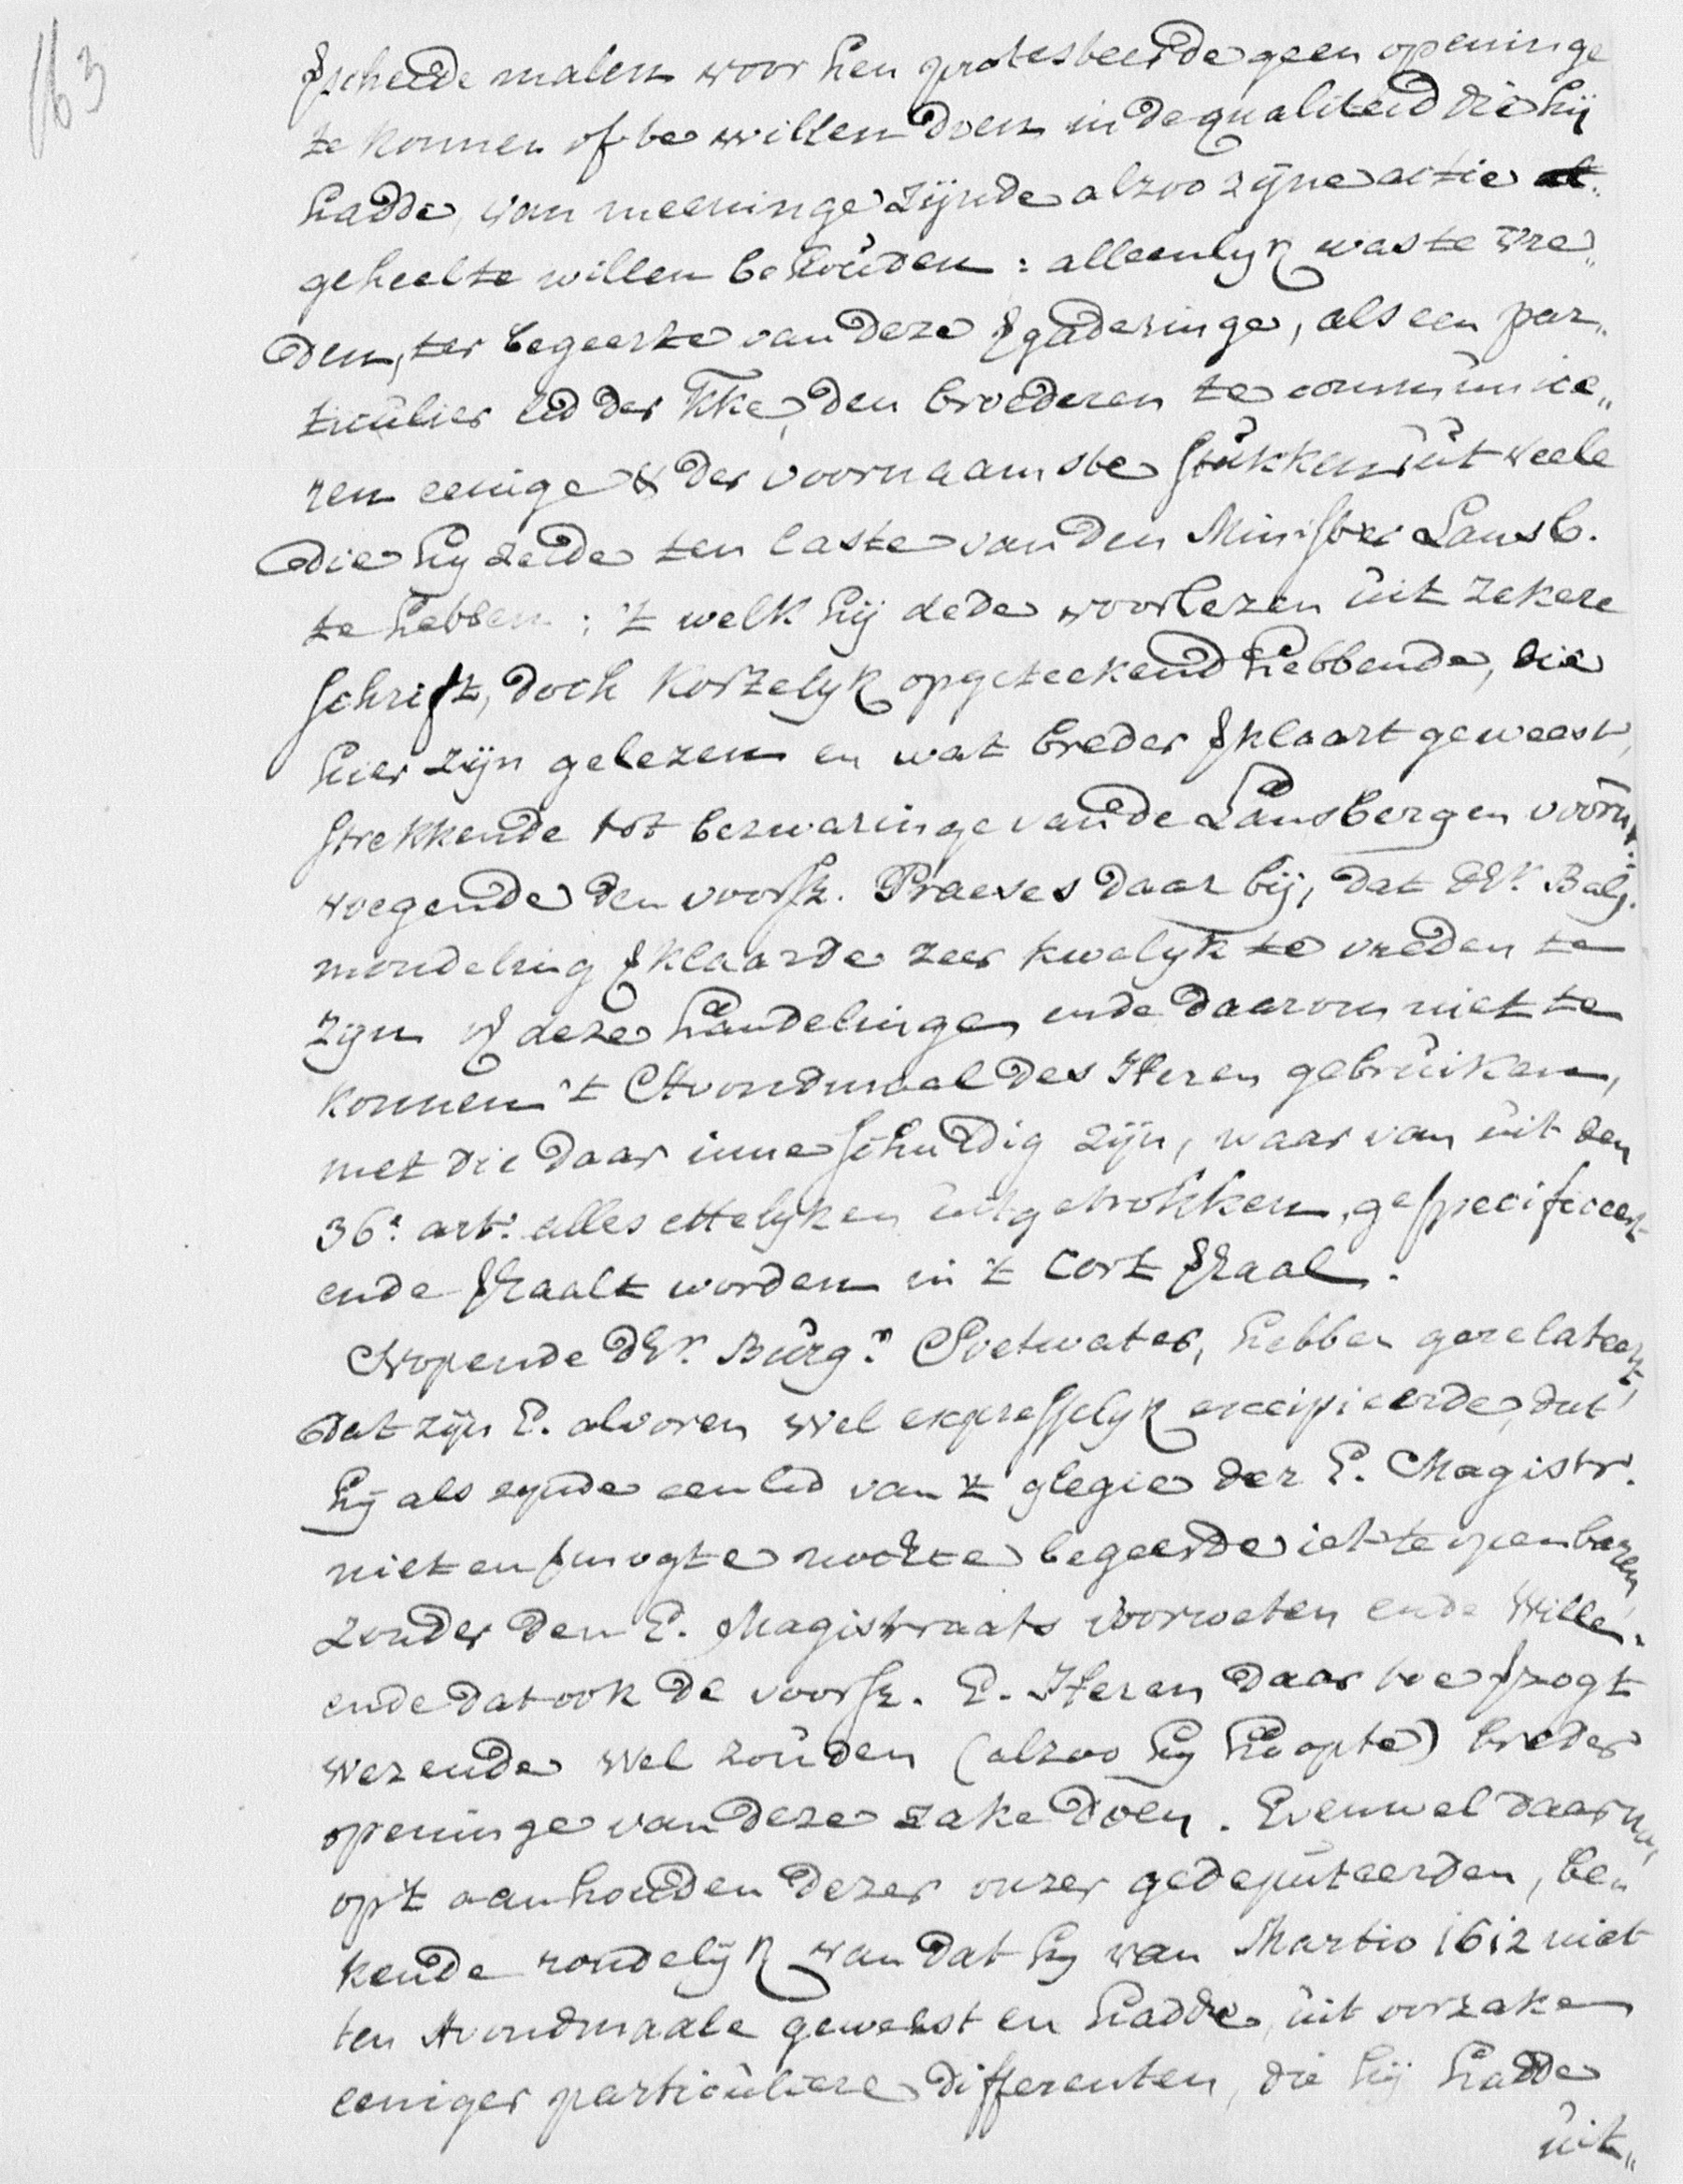 163
vscheide malen voor hen protesteerde geen openinge
te konnen ofte willen doen in de qualiteid die hij
hadde, van meeninge zijnde alzoo zijne actie
geheel te willen behouden: alleenlijk was te vre„
den, ter begeerte van deze vgaderinge, als een par„
ticulier lid der kke, den broederen te communice„
ren eenige der voornaamste stukken uit veele
die hij zeide ten laste van den Minister Lansb.
te hebben; 't welk hij dede voorlezen uit zekere
schrift, doch kortelijk opgeteekend hebbende, die
hier zijn gelezen en wat breder vklaart geweest,
strekkende tot bezwaringe van de Lansbergen voorn.
voegende den voorsz. Praeses daar bij, dat dHr. Balj.
mondeling vklaarde zeer kwalijk te vreden te
zijn deze handelinge, ende daarom niet te
konnen 't Avondmaal des Heren gebruiken,
met die daar inne schuldig zijn, waar van uit den
36e. art. alles ettelijken uitgetrokken, gespecificeert
ende vhaalt worden in 't cort vhaal.
Nopende dHr. Burgr. Soetwater, hebben gerelateert,
dat zijn E. alvoren wel expresselijk excipieerde, dat
hij als zijnde een lid van 't glegie der E. Magistr.
niet en vmogte nochte begeerde iet te openbaren
zonder den E. Magistraats voorweten ende wille.
ende dat ook de voorsz. E. Heren daar toe vzogt
wezende wel zouden (alzoo hij hoopte) breder
openinge van deze zake doen. Evenwel daarna,
op 't aanhouden dezer onzer gedeputeerden, be„
kende rondelijk van dat hij van Martio 1612 niet
ten Avondmaale geweest en hadde, uit oorzaken
eeniger particuliere differenten, die hij hadde
uit„